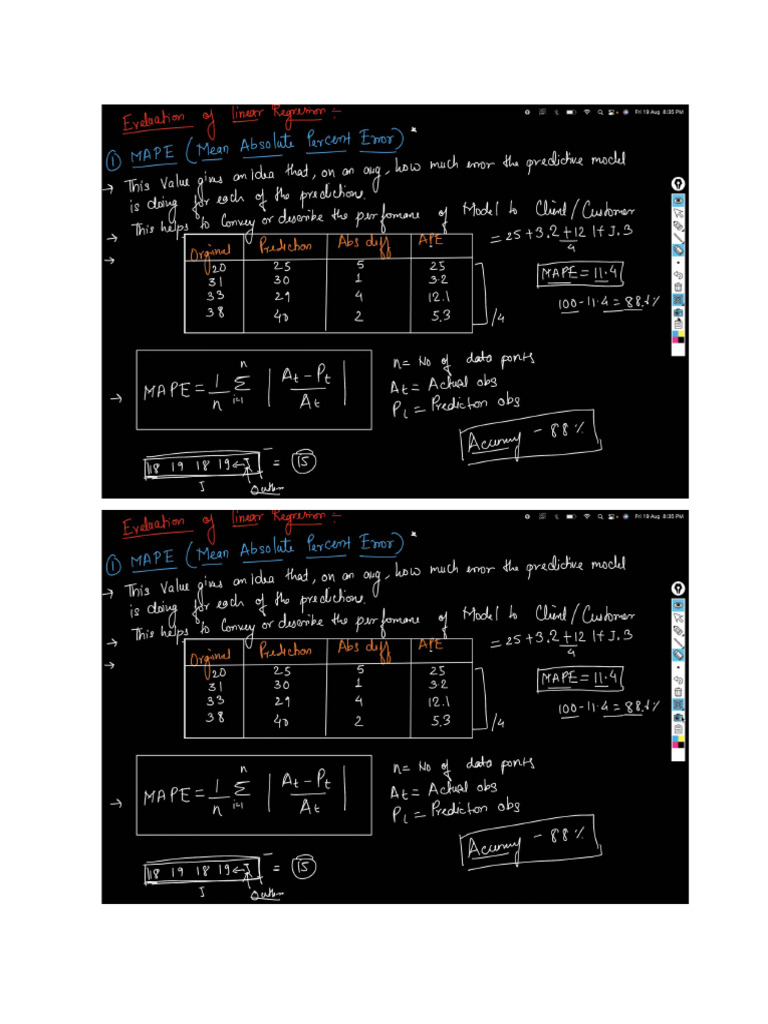 Evaluation of Linear Regression :-
Fri 19 Aug 8:35 PM
① MAPE (Mean Absolute Percent Error) *
→ This Value gives an idea that, on an avg, how much error the predictive model
is doing for each of the predictions.
→ This helps to Convey or describe the perfomane of Model to Client / Customer
→
Orginal Prediction Abs diff APE
20 25 5 25
31 30 1 3.2
33 29 4 12.1
38 40 2 5.3
/4
= 25 + 3.2 + 12.1 + 5.3
4
MAPE = 11.4
100 - 11.4 = 88.6 %
→ MAPE = 1/n Σ | At - Pt / At |
n
i=1
n = No of data ponts
At = Actual obs
Pi = Prediction obs
Accuracy - 88 %
18 19 18 19 ← = 15
Evaluation of Linear Regression :-
Fri 19 Aug 8:35 PM
① MAPE (Mean Absolute Percent Error) *
→ This Value gives an idea that, on an avg, how much error the predictive model
is doing for each of the predictions.
→ This helps to Convey or describe the perfomane of Model to Client / Customer
→
Orginal Prediction Abs diff APE
20 25 5 25
31 30 1 3.2
33 29 4 12.1
38 40 2 5.3
/4
= 25 + 3.2 + 12.1 + 5.3
4
MAPE = 11.4
100 - 11.4 = 88.6 %
→ MAPE = 1/n Σ | At - Pt / At |
n
i=1
n = No of data ponts
At = Actual obs
Pi = Prediction obs
Accuracy - 88 %
18 19 18 19 ← = 15